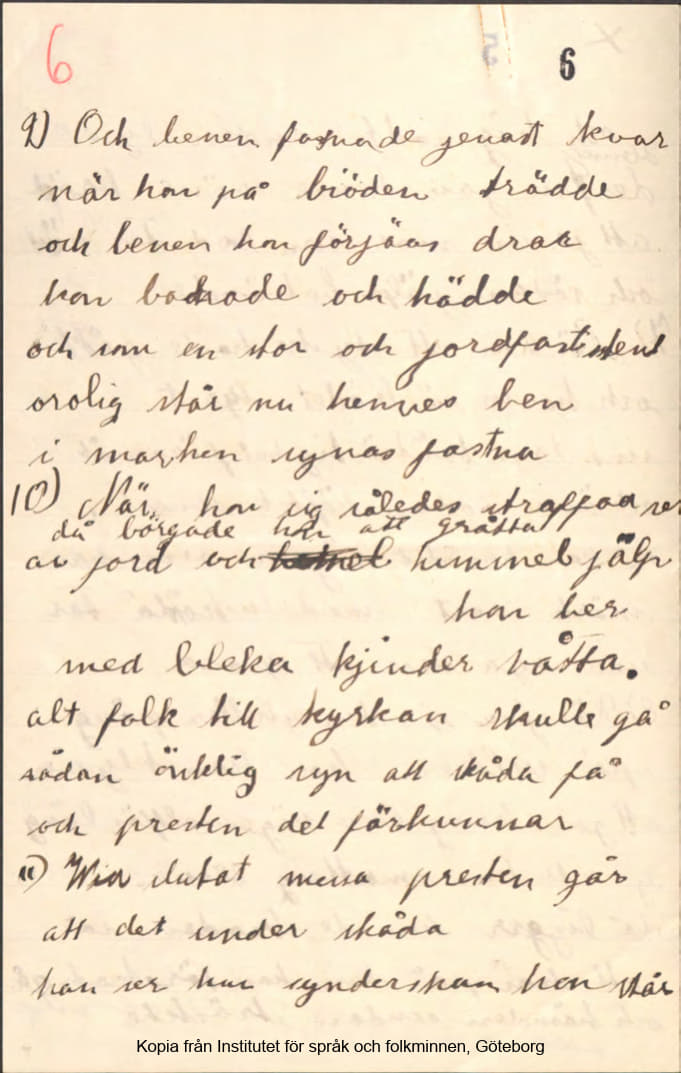 6
6
9) Och benen fasnade jenast kvar
när hon på bröden trädde
och benen hon förjäas draa
hon bad
och hädde
och som en stor och jordfast sten
orolig står nu hennes ben
i marken synas fastna
10) När hon sig således straffaa ser
då börgade hon att gråtta
av jord och himmel jälp
hon ber
med bleka kjinder våtta.
alt folk till kyrkan skulle gå
sådan önklig syn att skåda få
och presten det förkunnar
11) Wid slutat messa presten går
att det under skåda
han ser hur synderskan hon står
Kopia från Institutet för språk och folkminnen, Göteborg